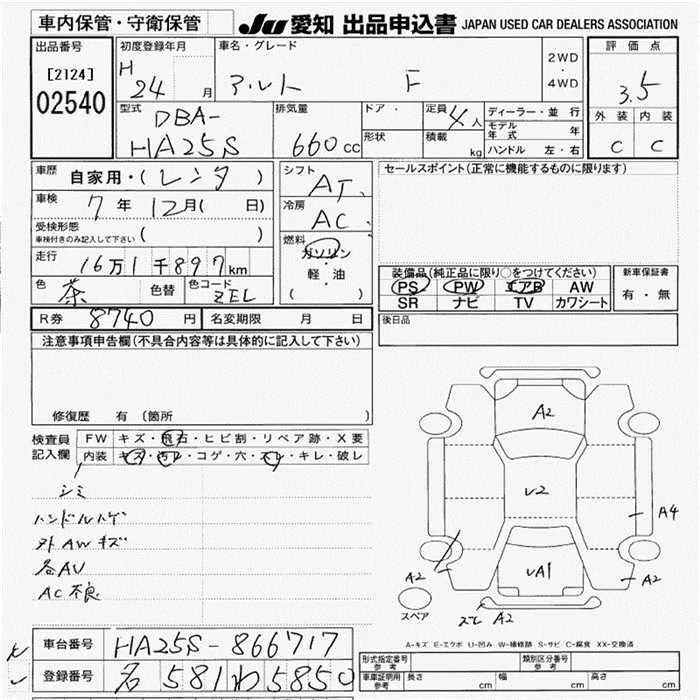 車内保管・守衛保管
JU 愛知 出品申込書 JAPAN USED CAR DEALERS ASSOCIATION
出品番号
[2124]
02540
初度登録年月
H 24 月
車名・グレード
アルト F
2WD ・ 4WD
評価点
3.5
外装 内装
C C
型式
DBA-
HA25S
排気量
660 CC
ドア・
形状
定員 4 人
積載 kg
ディーラー・並行
モデル年式 年
ハンドル 左・右
車歴 自家用・(レンタ)
車検 7年 12月( 日)
受検形態
車検付きのみ記入して下さい ( )
走行 16万1千897km
色 茶 色替 色コード ZEL
シフト AT
冷房 AC
燃料 ガソリン・軽油
( )
セールスポイント(正常に機能するものに限ります)
装備品(純正品に限り○をつけてください)
PS PW エアB AW
SR ナビ TV カワシート
新車保証書
有・無
R券 8740 円 名変期限 月 日
後日品
注意事項申告欄(不具合内容等は具体的に記入して下さい)
修復歴 有 (箇所 )
検査員記入欄
FW キズ・飛石・ヒビ割・リペア跡・X要
内装 キズ・汚レ・コゲ・穴・スレ・キレ・破レ
シミ
ハンドルハゲ
外AWキズ
各AU
AC不良
A2
A4
A2
A2
A2
スペア
A-キズ E-エクボ U-凹み W-補修跡 S-サビ C-腐食 XX-交換済
車台番号 HA25S-866717
登録番号 名 581 わ 5850
形式指定番号 参考
類別区分番号 参考
車庫証明用 参考 長さ cm 幅 cm 高さ cm